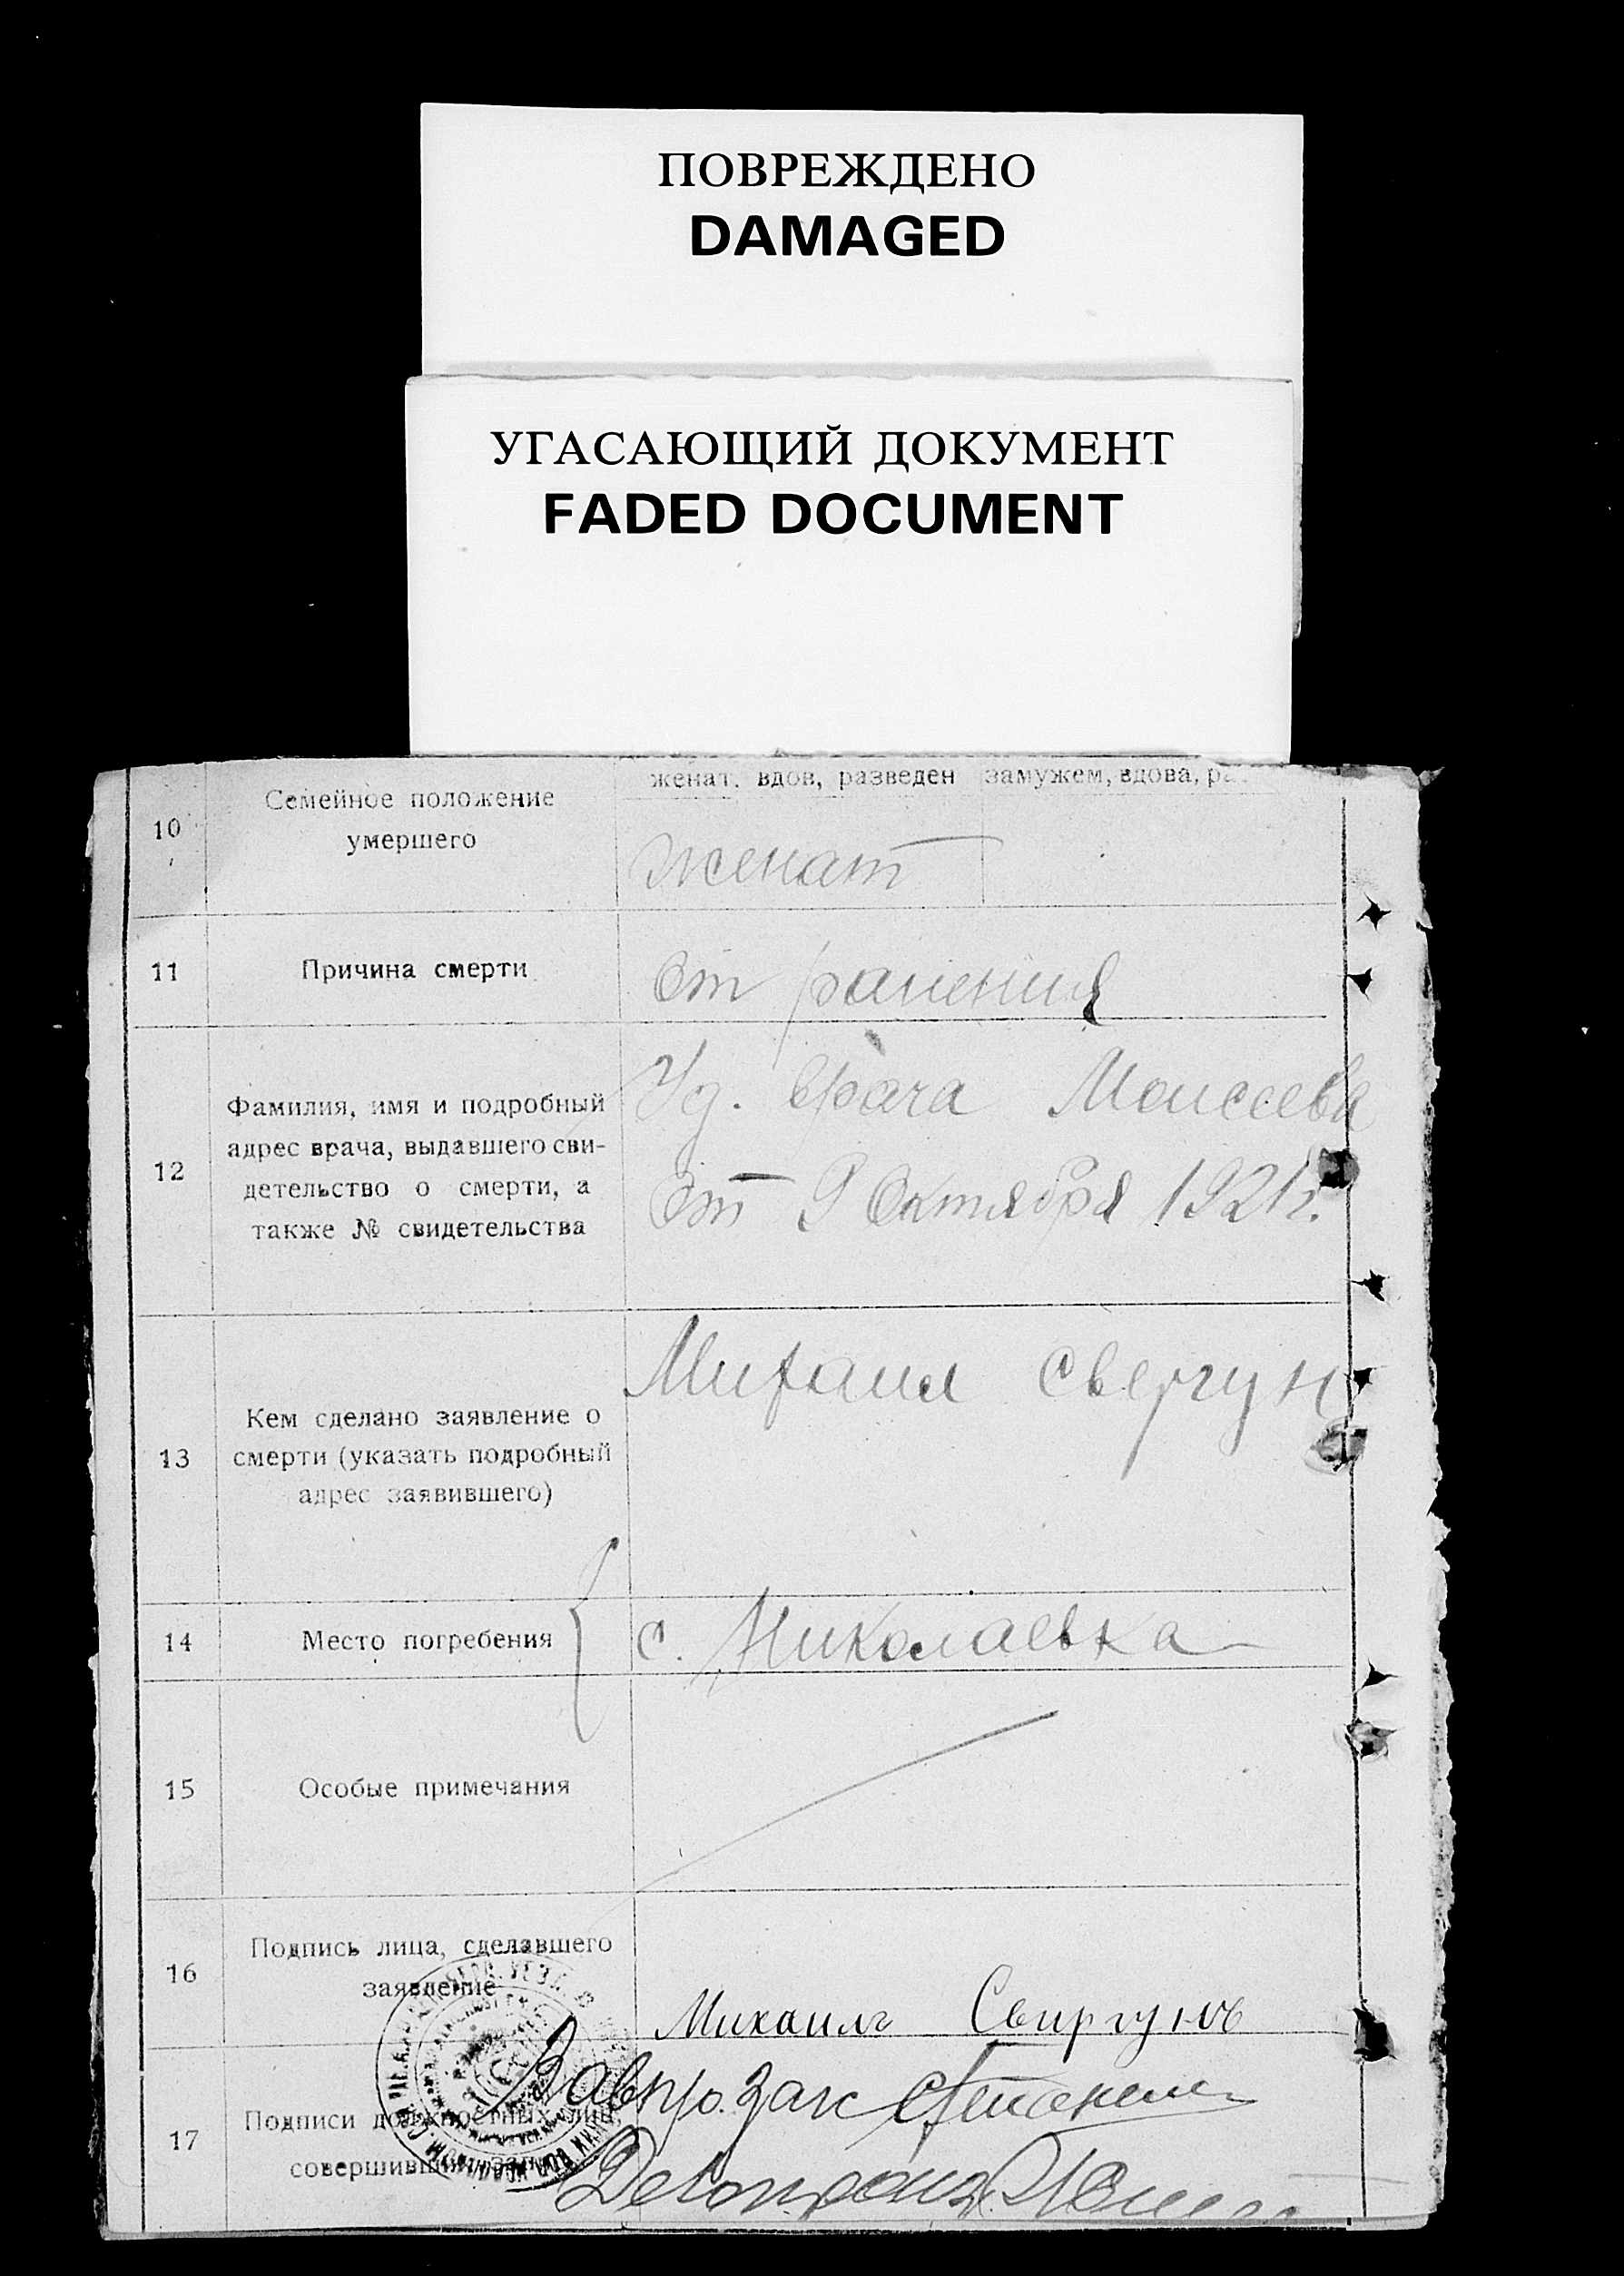 ПОВРЕЖДЕНО
DAMAGED
УГАСАЮЩИЙ ДОКУМЕНТ
FADED DOCUMENT
женат, вдов, разведен замужем, вдова,
10 Семейное положение
умершего
женат
11 Причина смерти
от ранения
12 Фамилия, имя и подробный
адрес врача, выдавшего сви-
детельство о смерти, а
также № свидетельства
Уд. врача Моисеева
От 9 Октября 1921 г.
13 Кем сделано заявление о
смерти (указать подробный
адрес заявившего)
Михаил Свергун
14 Место погребения
с. Николаевка
15 Особые примечания
16 Подпись лица, сделавшего
заявление
Михаилъ Свиргунъ
17 Подписи должностных лиц,
совершивших запись
Завп/о. загс
Делопроиз.